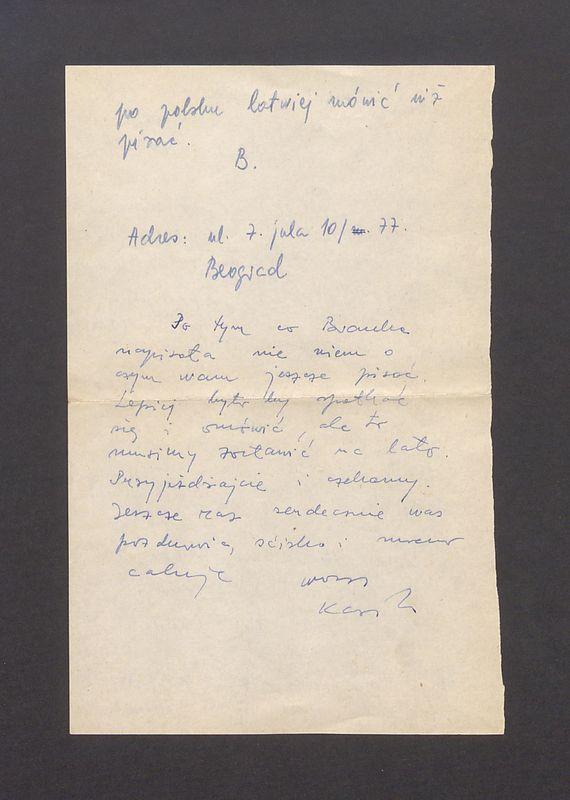 po polsku łatwiej mówić niż
pisać.
B.
Adres: ul. 7. jula 10/ 77.
Beograd
Po tym co Branka
napisała nie wiem o
czym wam jeszcze pisać.
Lepiej było by spotkać
się i omówić, ale to
musimy zostawić na lato.
Przyjeżdżajcie i czekamy.
Jeszcze raz serdecznie was
pozdrawia, ściska i mocno
całuje wasz